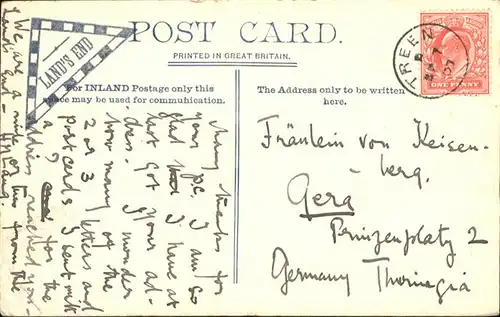 POST CARD.
PRINTED IN GREAT BRITAIN.
LAND'S END
For INLAND Postage only this
space may be used for communication.
The Address only to be written
here.
TREEN
07
ONE PENNY
Many thanks for
your p.c. I am so
glad I have at
last got your ad-
dress. I wonder
how many of the
2 or 3 letters and
postcards I sent
for the
address reached you.
We are a mile or two from the
Land's End –
Fräulein von Keisen-
berg.
Gera
Prinzenplatz 2
Germany Thoringia